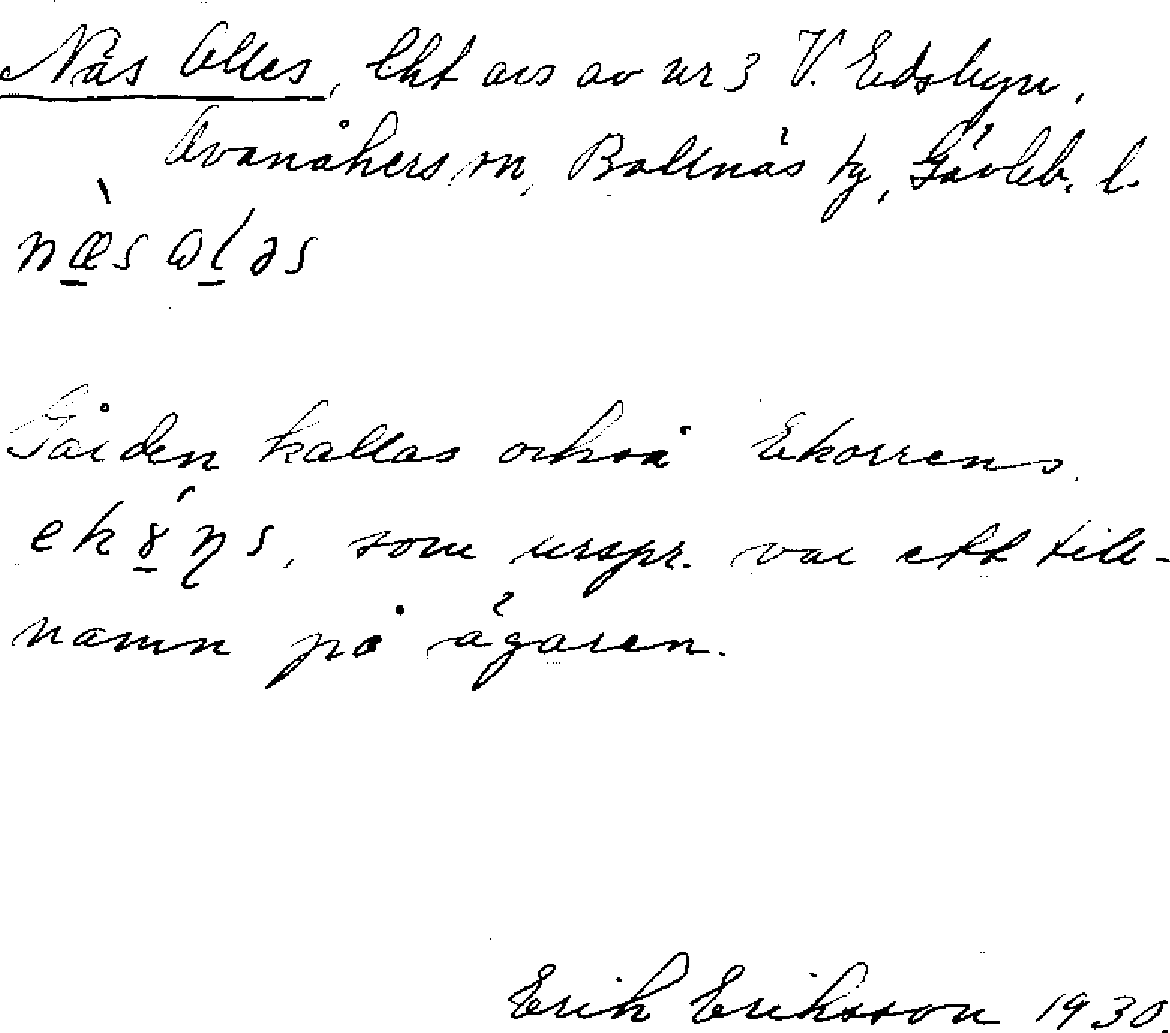 Näs Olles, lht avs av nr 3 V. Edsbyn,
Ovanåkers sn, Bollnäs tg, Gävleb. l.
næ̀s ωləs
Gården kallas också Ekorrens.
ekɤ́n̥s, som urspr. var ett till-
namn på ägaren.
Erik Eriksson 1930.